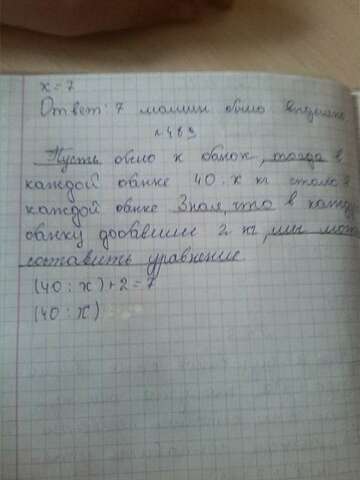 x = 7
Ответ: 7 машин было
№ 483
Пусть было x банок, тогда в
каждой банке 40 : x кг стало в
каждой банке Зная, что в кажд
банку добавили 2 кг, мы мож
составить уравнение
(40 : x) + 2 = 7
(40 : x)